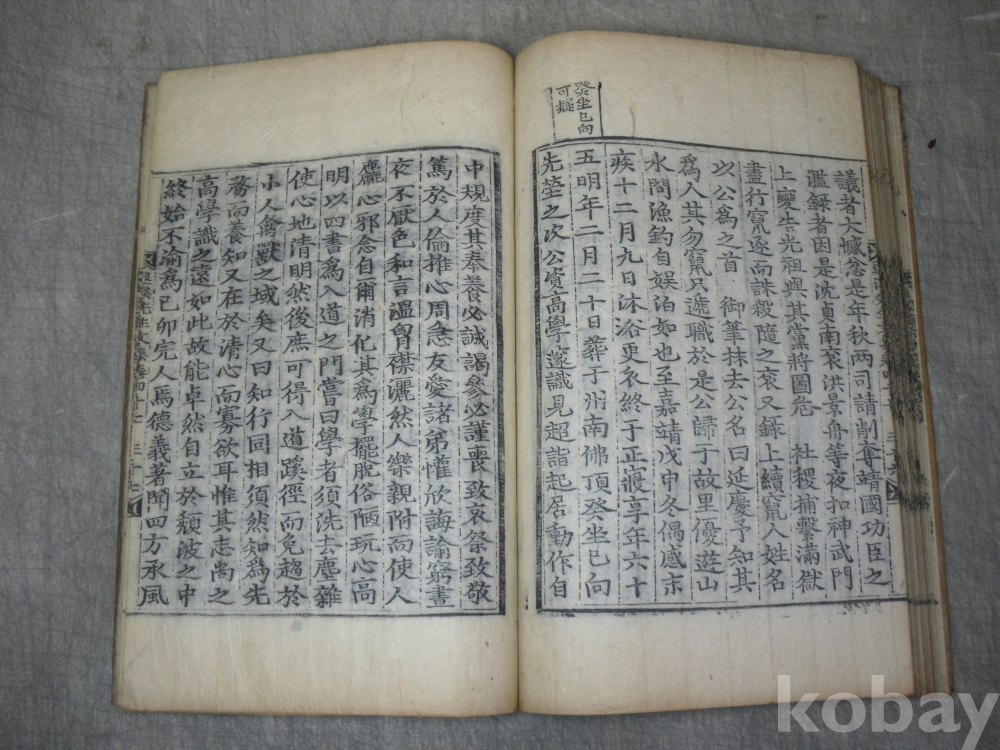 癸坐巳向
可疑
議者大憾忿是年秋兩司請削奪靖國功臣之
濫錄者因是沈貞南袞洪景舟等夜扣神武門
上變告光祖與其黨將圖危 社稷捕繫滿獄
盡行竄逐而誅殺隨之袞又錄上續竄人姓名
以公爲之首 御筆抹去公名曰延慶予知其
爲人其勿竄只遞職於是公歸于故里優遊山
水間漁釣自娛泊如也至嘉靖戊申冬偶感末
疾十二月九日沐浴更衣終于正寢享年六十
五明年二月二十日葬于州南佛頂癸坐巳向
先塋之次公資高學邃識見超詣起居動作自
中規度其奉養必誠謁參必謹喪致哀祭致敬
篤於人倫推心周急友愛諸弟懽欣誨諭窮晝
夜不厭色和言溫胷襟灑然人樂親附而使人
麤心邪念自爾消化其爲學擺脫俗陋玩心高
明以四書爲入道之門嘗曰學者須洗去塵雜
使心地清明然後庶可得入道蹊徑而免趨於
小人禽獸之域矣又曰知行固相須然知爲先
務而養知又在於清心而寡欲耳惟其志尚之
高學識之遠如此故能卓然自立於頹波之中
終始不渝爲已卯完人焉德義著聞四方承風
kobay